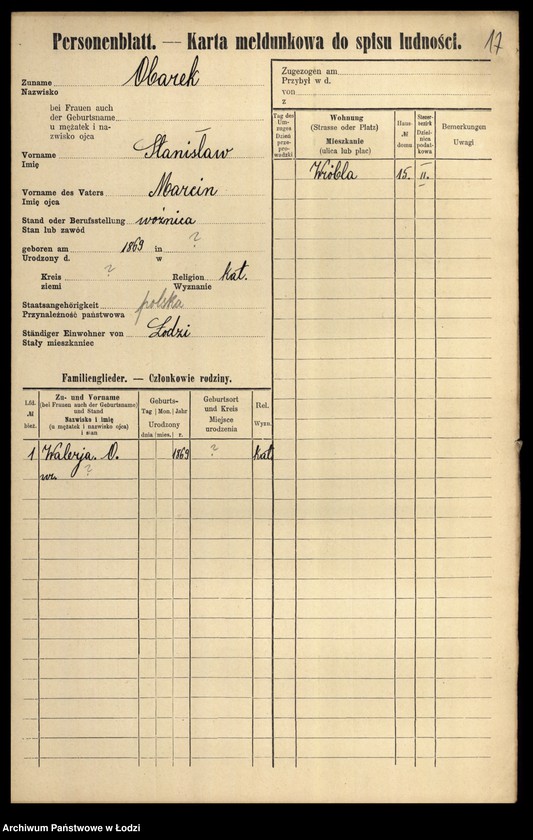 Personenblatt. — Karta meldunkowa do spisu ludności.
17
Zuname Obarek
Nazwisko
bei Frauen auch
der Geburtsname
u mężatek i na-
zwisko ojca
Vorname Stanisław
Imię
Vorname des Vaters Marcin
Imię ojca
Stand oder Berufsstellung woźnica
Stan lub zawód
geboren am 1869 in ?
Urodzony d. w
Kreis ? Religion kat.
ziemi Wyznanie
Staatsangehörigkeit polska
Przynależność państwowa
Ständiger Einwohner von Łodzi
Stały mieszkaniec
Zugezogen am
Przybył w d.
von
z
Tag des Um-zuges Dzień prze-pro-wadzki
Wohnung
(Strasse oder Platz)
Mieszkanie
(ulica lub plac)
Haus
№
domu
Steuer-bezirk Dziel-nica podat-kowa
Bemerkungen
Uwagi
Wróbla 15. II.
Familienglieder. — Członkowie rodziny.
Lfd.
№
bież.
Zu- und Vorname
(bei Frauen auch der Geburtsname)
und Stand
Nazwisko i imię
(u mężatek i nazwisko ojca)
i stan
Geburts-
Tag Mon. Jahr
Urodzony
dnia mies. r.
Geburtsort
und Kreis
Miejsce
urodzenia
Rel.
Wyzn.
1 Walerja. O. 1869 ? kat
?
Archiwum Państwowe w Łodzi